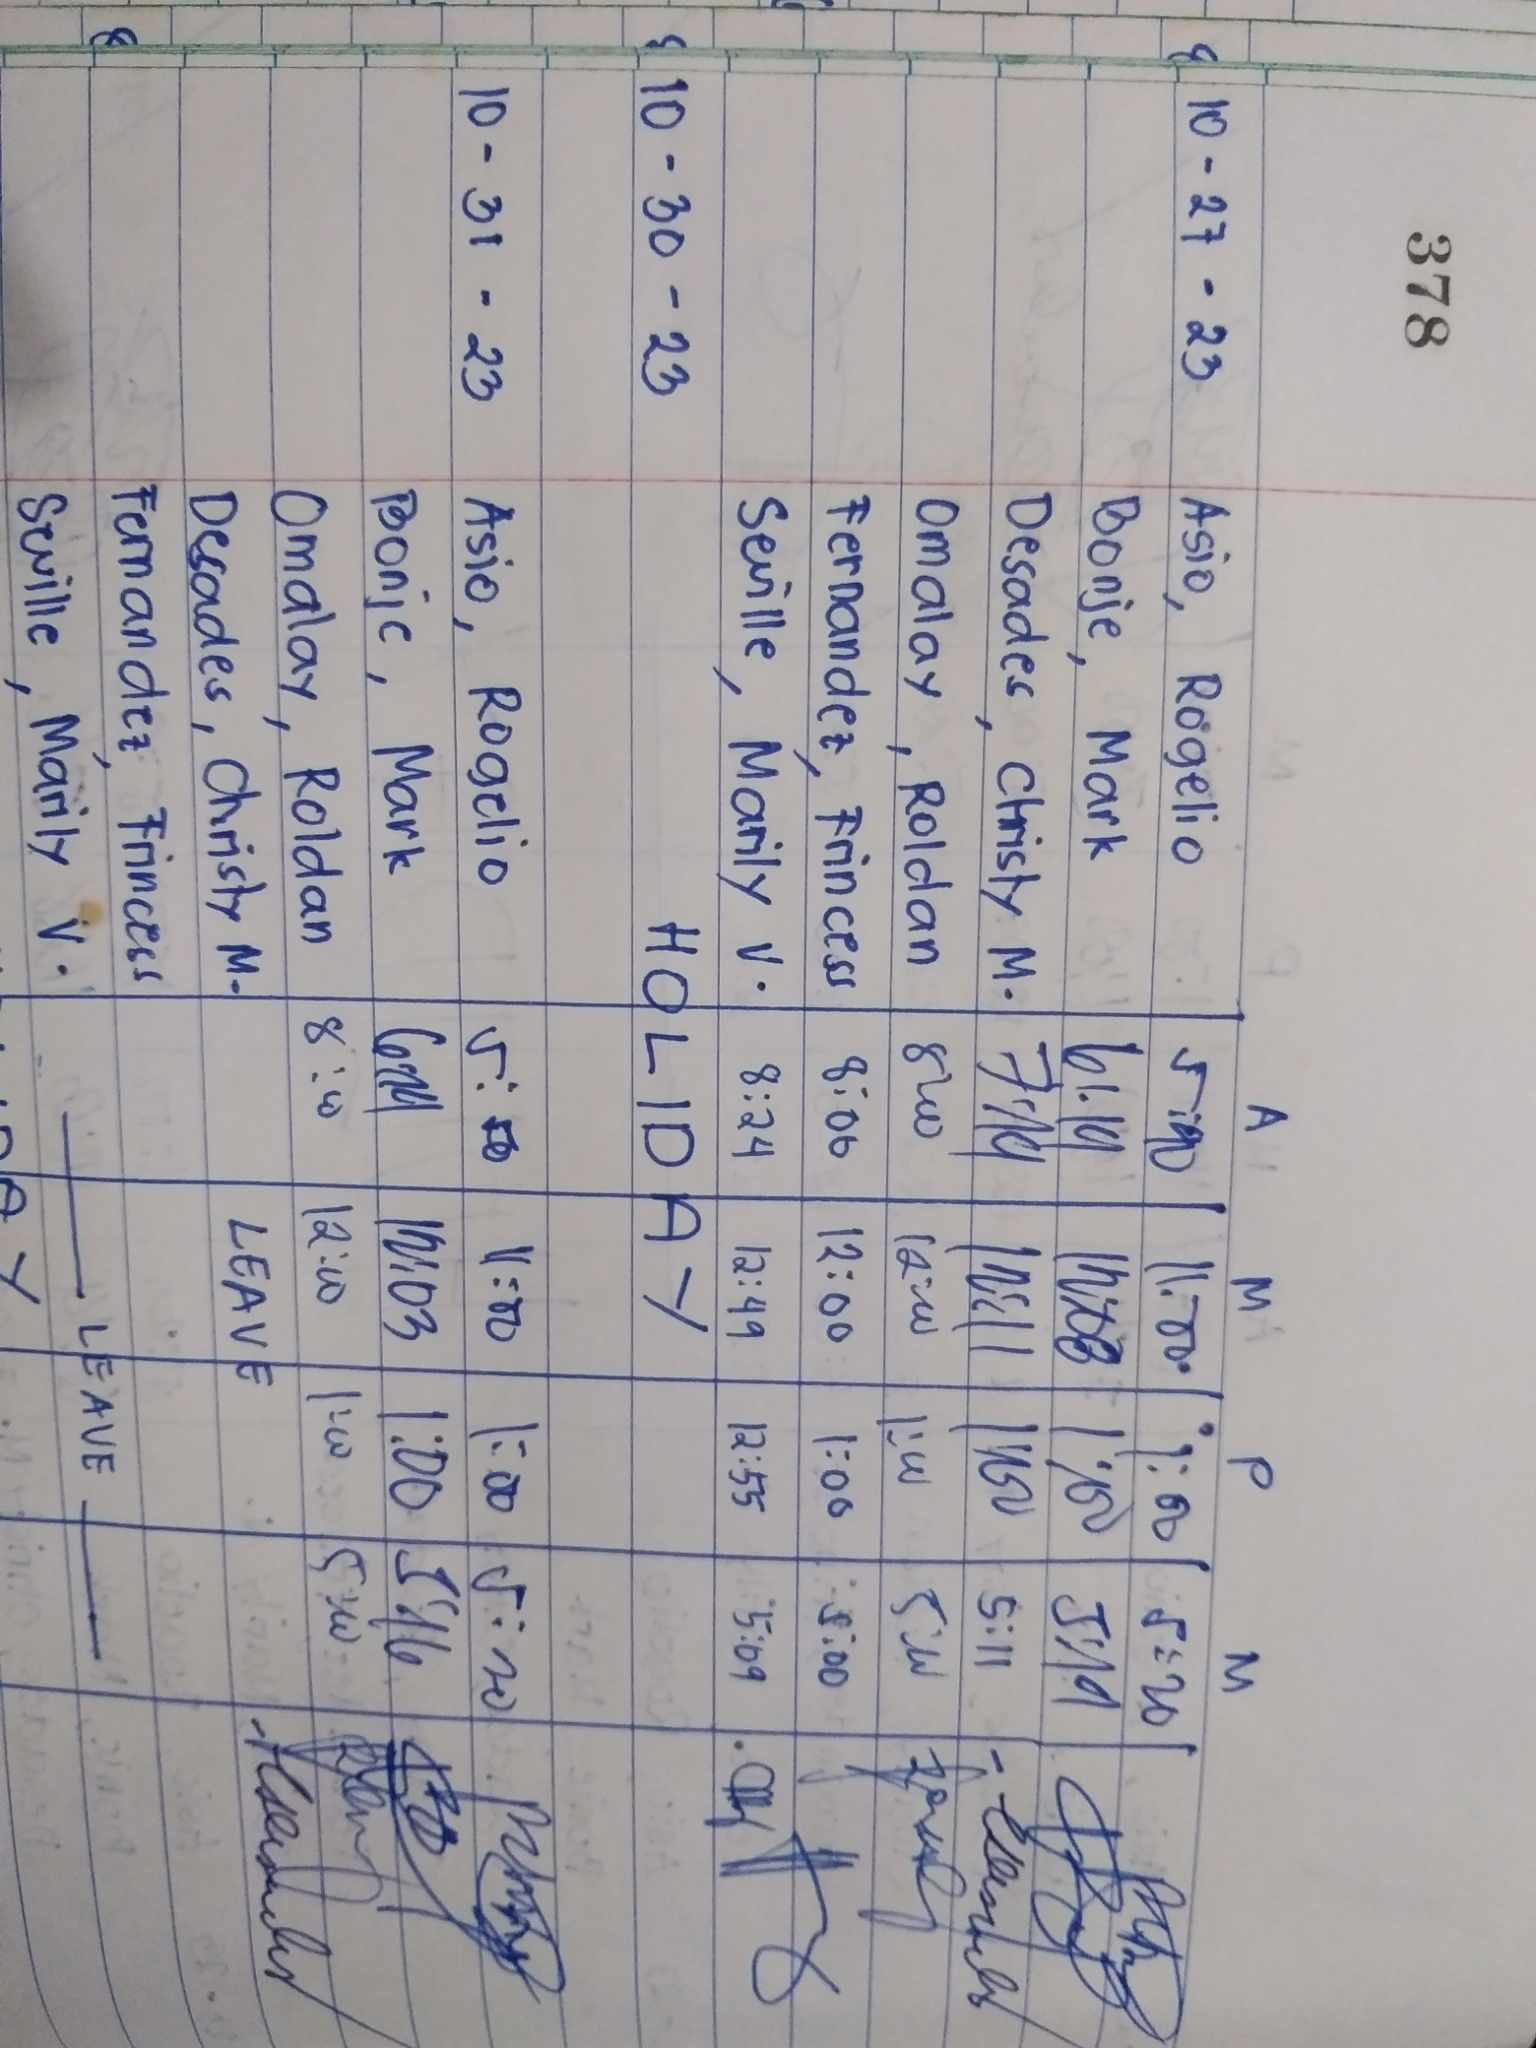 378
A M P M
10-27-23 Asio, Rogelio 11:00 1:00 5:20
Bonje, Mark
Desades, Christy M. 5:11
Omalay, Roldan 8:00 12:00 1:00 5:00
Fernandez, Frincess 8:00 12:00 1:00 5:00
Seville, Marily V. 8:24 12:49 12:55 5:09
10-30-23 HOLIDAY
10-31-23 Asio, Rogelio 11:00 1:00 5:20
Bonje, Mark 1:00 5:16
Omalay, Roldan 8:00 12:00 1:00 5:00
Desades, Christy M. LEAVE
Fernandez, Frincess
Seville, Marily V. LEAVE